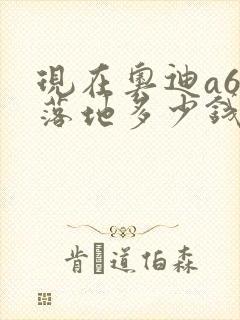 现在奥迪a6
落地多少钱
肯道伯森